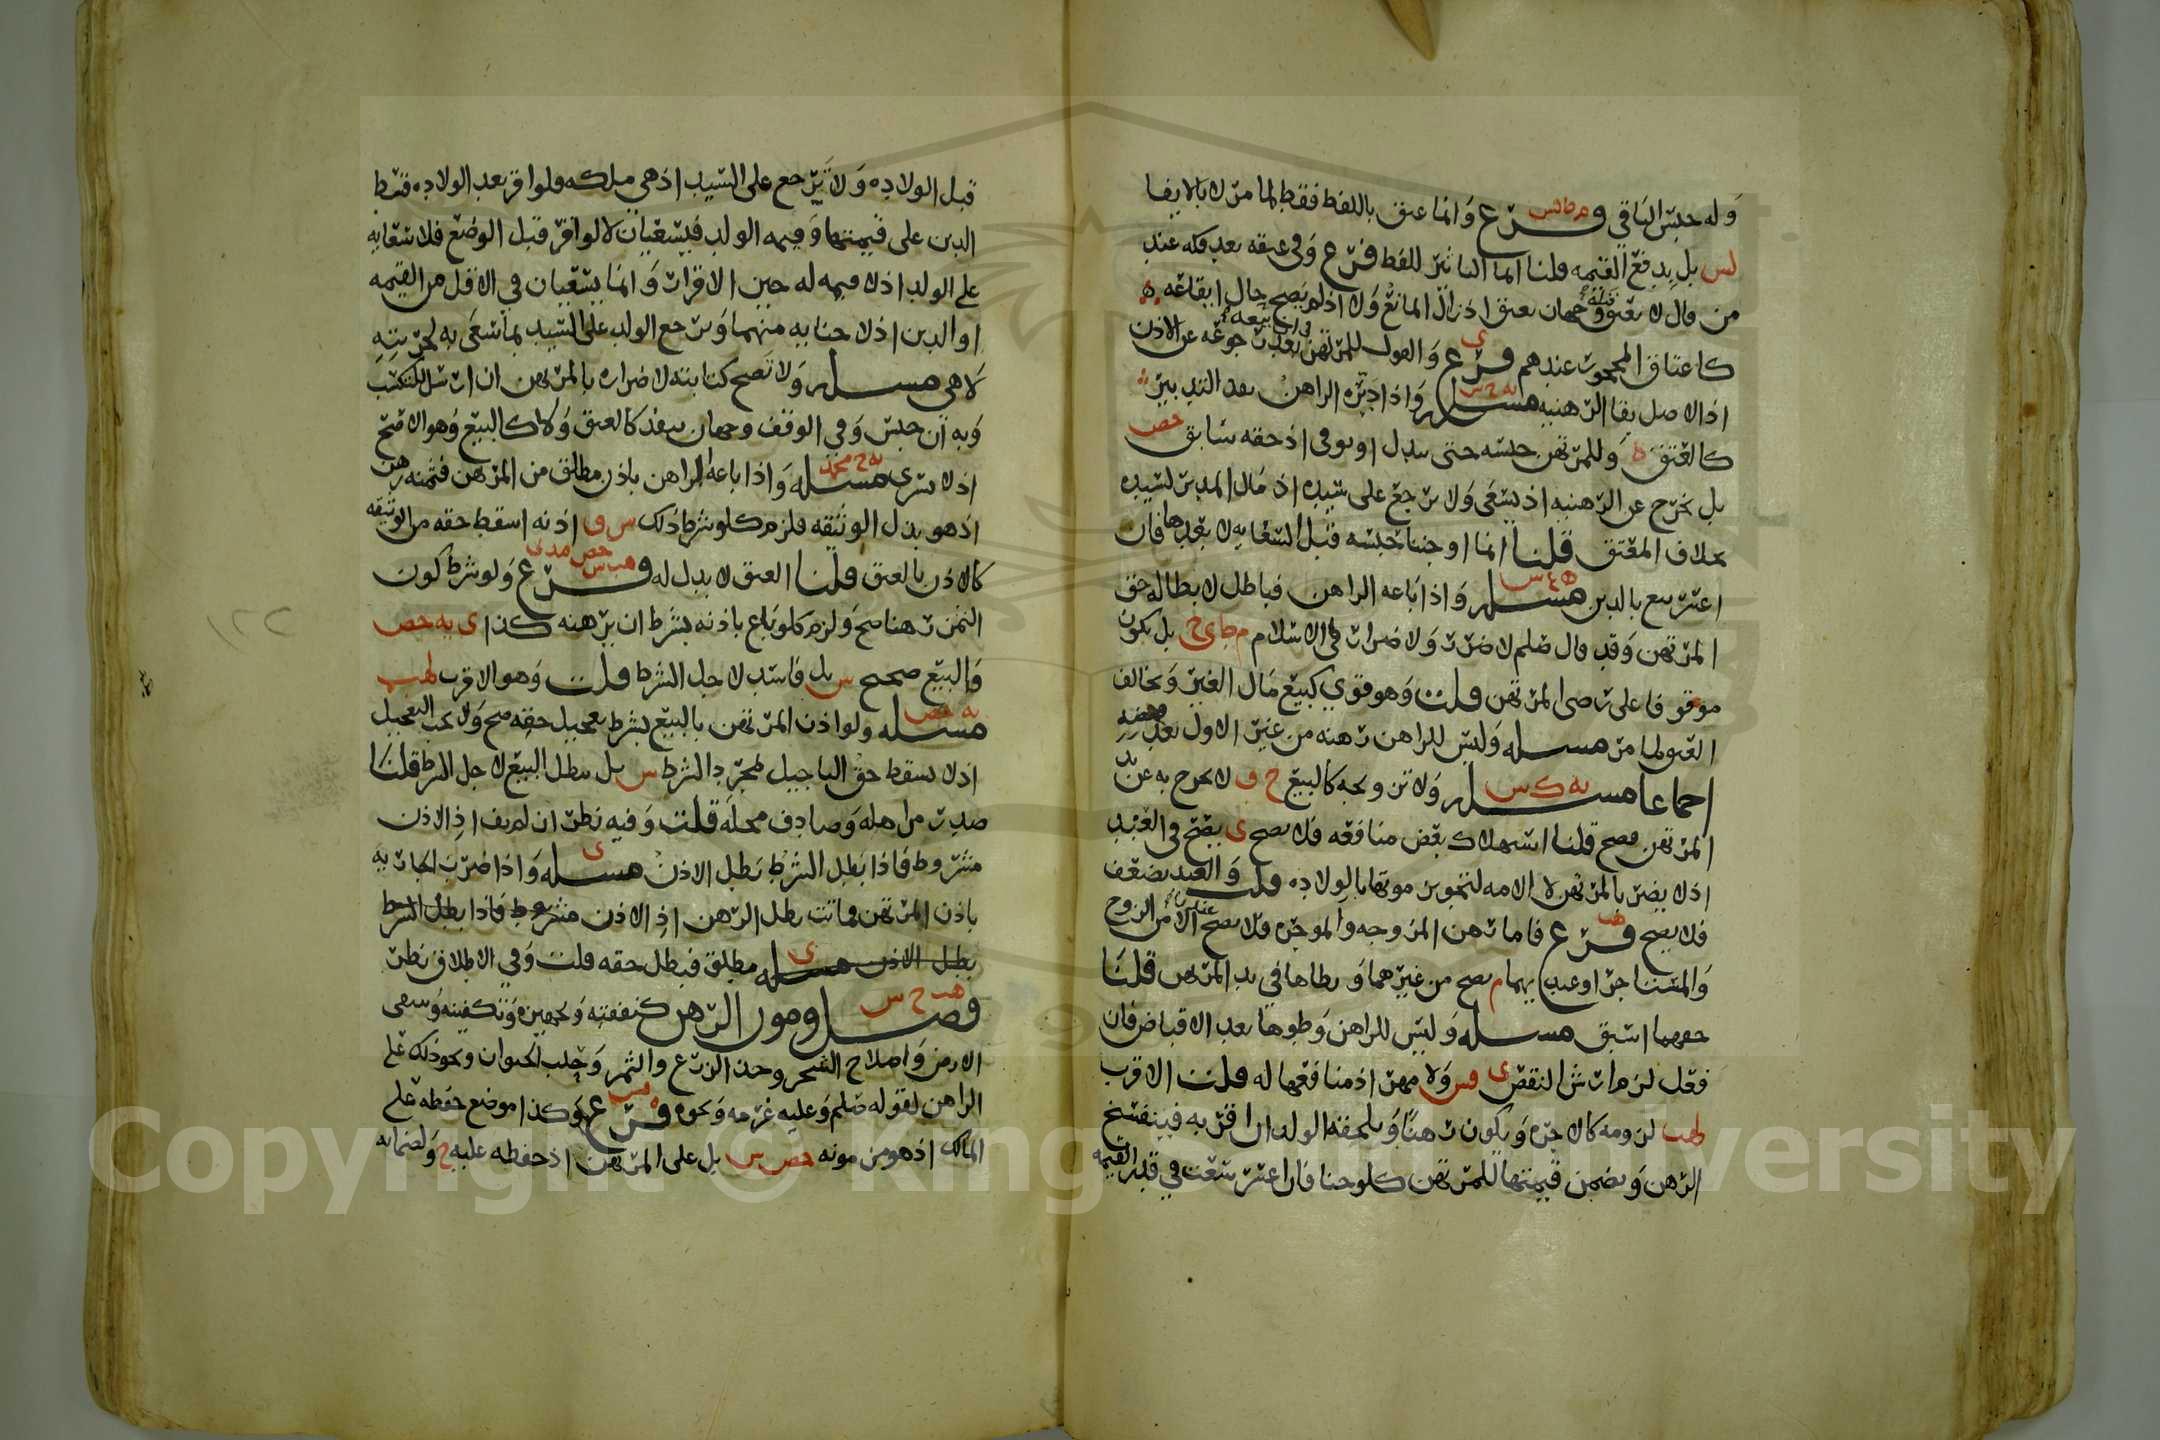 وله حبس الباقي فرع وانما عتق باللفظ فقط لما مر لا بالايفا
بل بدفع القيمه قلنا انما التاثير للفظ فرع وفي عتقه بعد فكه عند
من قال لا يعتق قبله وجهان يعتق اذ زال المانع ولا اذ لم يصح حال ايقاعه
كاعتاق المحجور عندهم فرع والقول للمرتهن بعد رجوعه عن الاذن
اذ الاصل بقا الرهنيه مسله واذا دبره الراهن بعد التدبير
كالعتق وللمرتهن حبسه حتى يبدل او يوفي اذ حقه سابق حص
بل يخرج عن الرهنيه اذ يسعى ولا يرجع على سيده اذ مال المدبر لسيده
بخلاف المعتق قلنا انما اوجبنا حبسه قبل السعايه لا بعدها فان
اعسر بيع بالدين مسله واذا باعه الراهن فباطل لابطاله حق
المرتهن وقد قال صلم لا ضرر ولا ضرار في الاسلام بل يكون
موقوفا على رضى المرتهن قلت وهو قوي كبيع مال الغير ويخالف
العتق لما مر مسله وليس للراهن رهنه من غير الاول بعد قبضه
اجماعا مسله ولا تزويجه كالبيع ح ف لا يخرج به عن يد
المرتهن فصح قلنا استهلاك بعض منافعه فلا يصح ى يصح في العبد
اذ لا يضر بالمرتهن لا الامه لتجويز موتها بالولاده قلت والعبد يضعف
فلا يصح فرع فاما رهن المزوجه والموجره فلا يصح الا من الزوج
والمستاجر او عبديهما م يصح من غيرهما ويطاها في يد المرتهن قلنا
حقهما اسبق مسله وليس للراهن وطوها بعد الاقباض فان
فعل لزم ارش النقص ى وس ولا مهر اذ منافعها له قلت الاقرب
لهب لزومه كالاجره ويكون رهنا ويلحقه الولد ان اقر به فينفسخ
الرهن ويضمن قيمتها للمرتهن كلو جنا فان اعسر سعت في قدر القيمه
قبل الولاده ولا يرجع على السيد اذ هي ملكه فلو اقر بعد الولاده قسط
الدين على قيمتها وقيمه الولد فيسعيان لا لو اقر قبل الوضع فلا سعايه
على الولد اذ لا قيمه له حين الاقرار وانما يسعيان في الاقل من القيمه
او الدين اذ لا جنايه منهما ويرجع الولد على السيد بما سعى به لحريته
لا هي مسله ولا تصح كتابته لاضراره بالمرتهن ان ارسل للتكسب
وبه ان حبس وفي الوقف وجهان ينفذ كالعتق ولا كالبيع وهو الاصح
اذ لا يسري مسله واذا باعه الراهن باذن مطلق من المرتهن فثمنه رهن
اذ هو بدل الوثيقه فلزم كلو شرط ذلك س ف اذنه اسقط حقه من الوثيقه
كالاذن بالعتق قلنا العتق لا بدل له فرع ولو شرط كون
الثمن رهنا صح ولزم كلو باع باذنه بشرط ان يرهنه كذا ى يه حص
والبيع صحيح س بل فاسد لاجل الشرط قلت وهو الاقرب لهب
مسله ولو اذن المرتهن بالبيع بشرط تعجيل حقه صح ولا يجب التعجيل
اذ لا يسقط حق التاجيل لمجرد الشرط س بل يبطل البيع لاجل الشرط قلنا
صدر من اهله وصادف محله قلت وفيه نظر ان لم يف اذ الاذن
مشروط فاذا بطل الشرط بطل الاذن مسله واذا ضرب الجاريه
باذن المرتهن فماتت بطل الرهن اذ الاذن مشروط فاذا بطل الشرط
بطل الاذن مسله مطلق فبطل حقه قلت وفي الاطلاق نظر
فصل ومون الرهن كنفقته وتجهيزه وتكفينه وسقي
الارض واصلاح الشجر وجذ الزرع والثمر وجلب الحيوان ونحو ذلك على
الراهن لقوله صلم وعليه غرمه ونحوه فرع وكذا موضع حفظه على
المالك اذ هو من مونه حص س بل على المرتهن اذ حفظه عليه ح ولضمانه
١٢٢